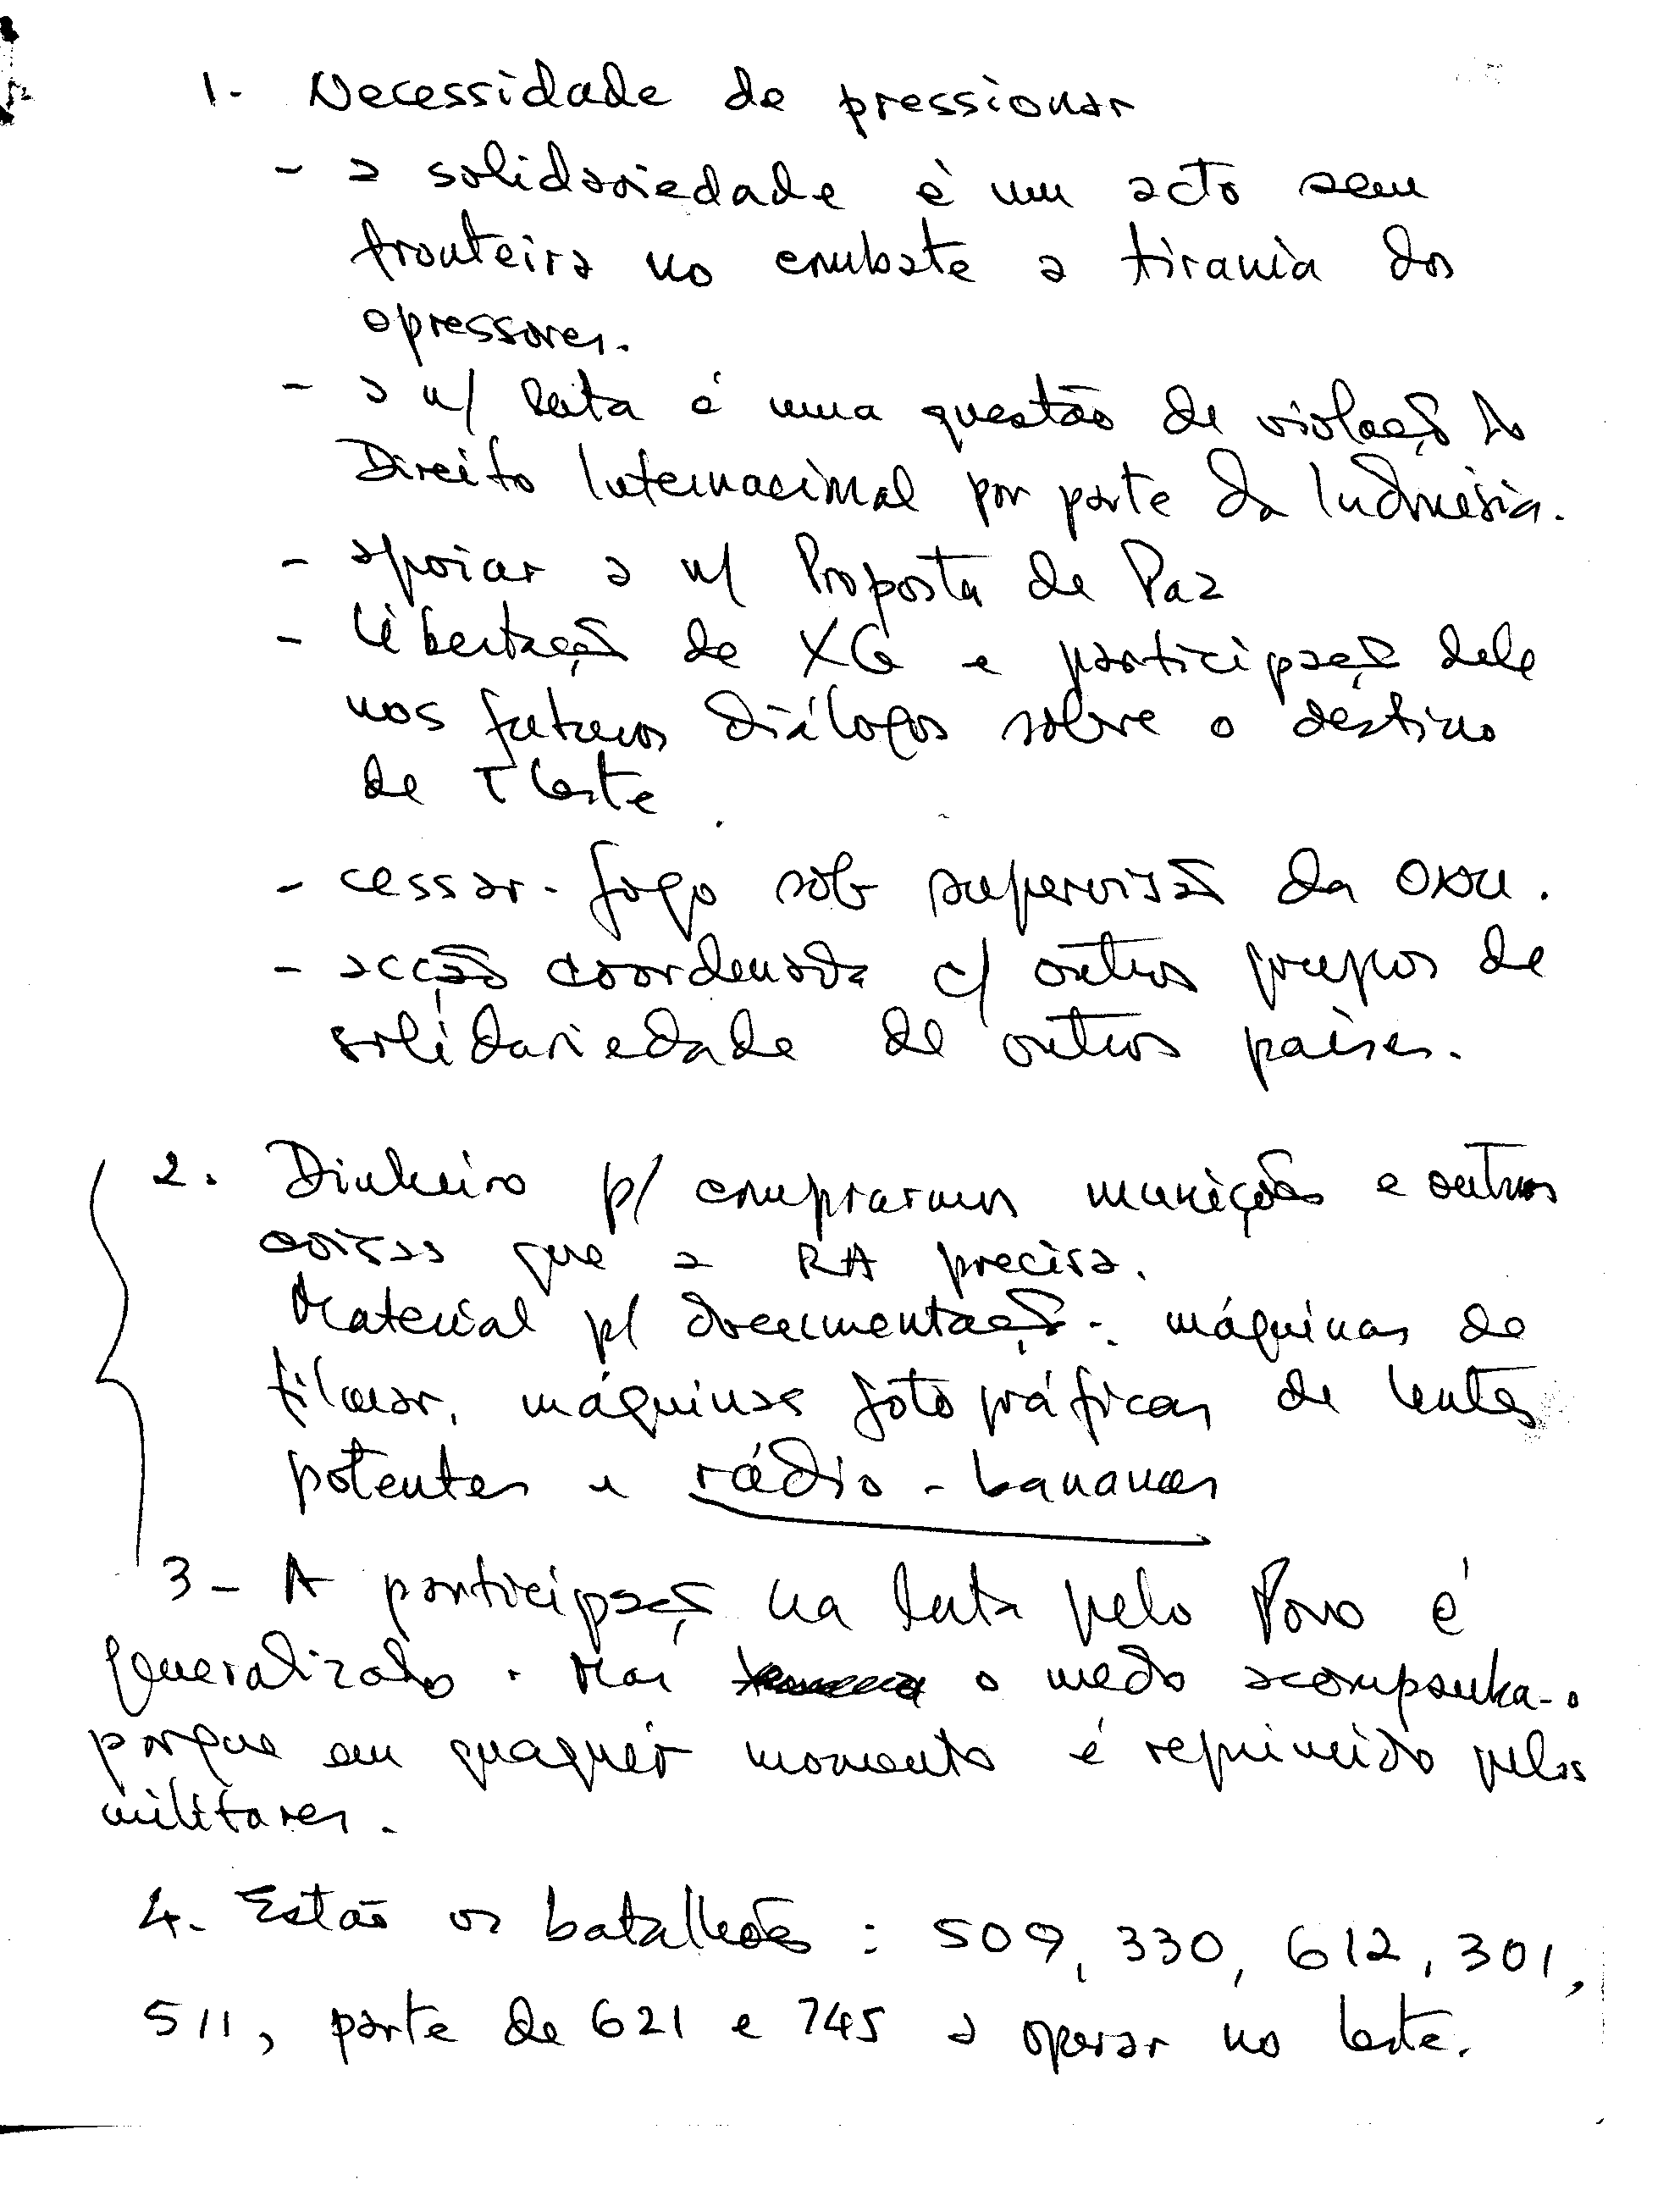 1. Necessidade de pressionar
- a solidariedade é um acto sem
fronteira no combate a tirania dos
opressores.
- a n/ luta é uma questão de violação do
Direito Internacional por parte da Indonésia.
- apoiar a n/ Proposta de Paz
- libertação de XG e participação dele
nos futuros diálogos sobre o destino
de T Leste.
- cessar-fogo sob supervisão da ONU.
- acção coordenada c/ outros grupos de
solidariedade de outros países.
2. Dinheiro p/ comprarmos munições e outras
coisas que a RA precisa.
Material p/ documentação: máquinas de
filmar, máquinas fotográficas de lentes
potentes e rádio-bananas
3- A participação na luta pelo Povo é
generalizado. Mas o medo acompanha-o
porque em quaquer momento é reprimido pelos
militares.
4. Estão os batalhões: 509, 330, 612, 301,
511, parte de 621 e 745 a operar no leste.